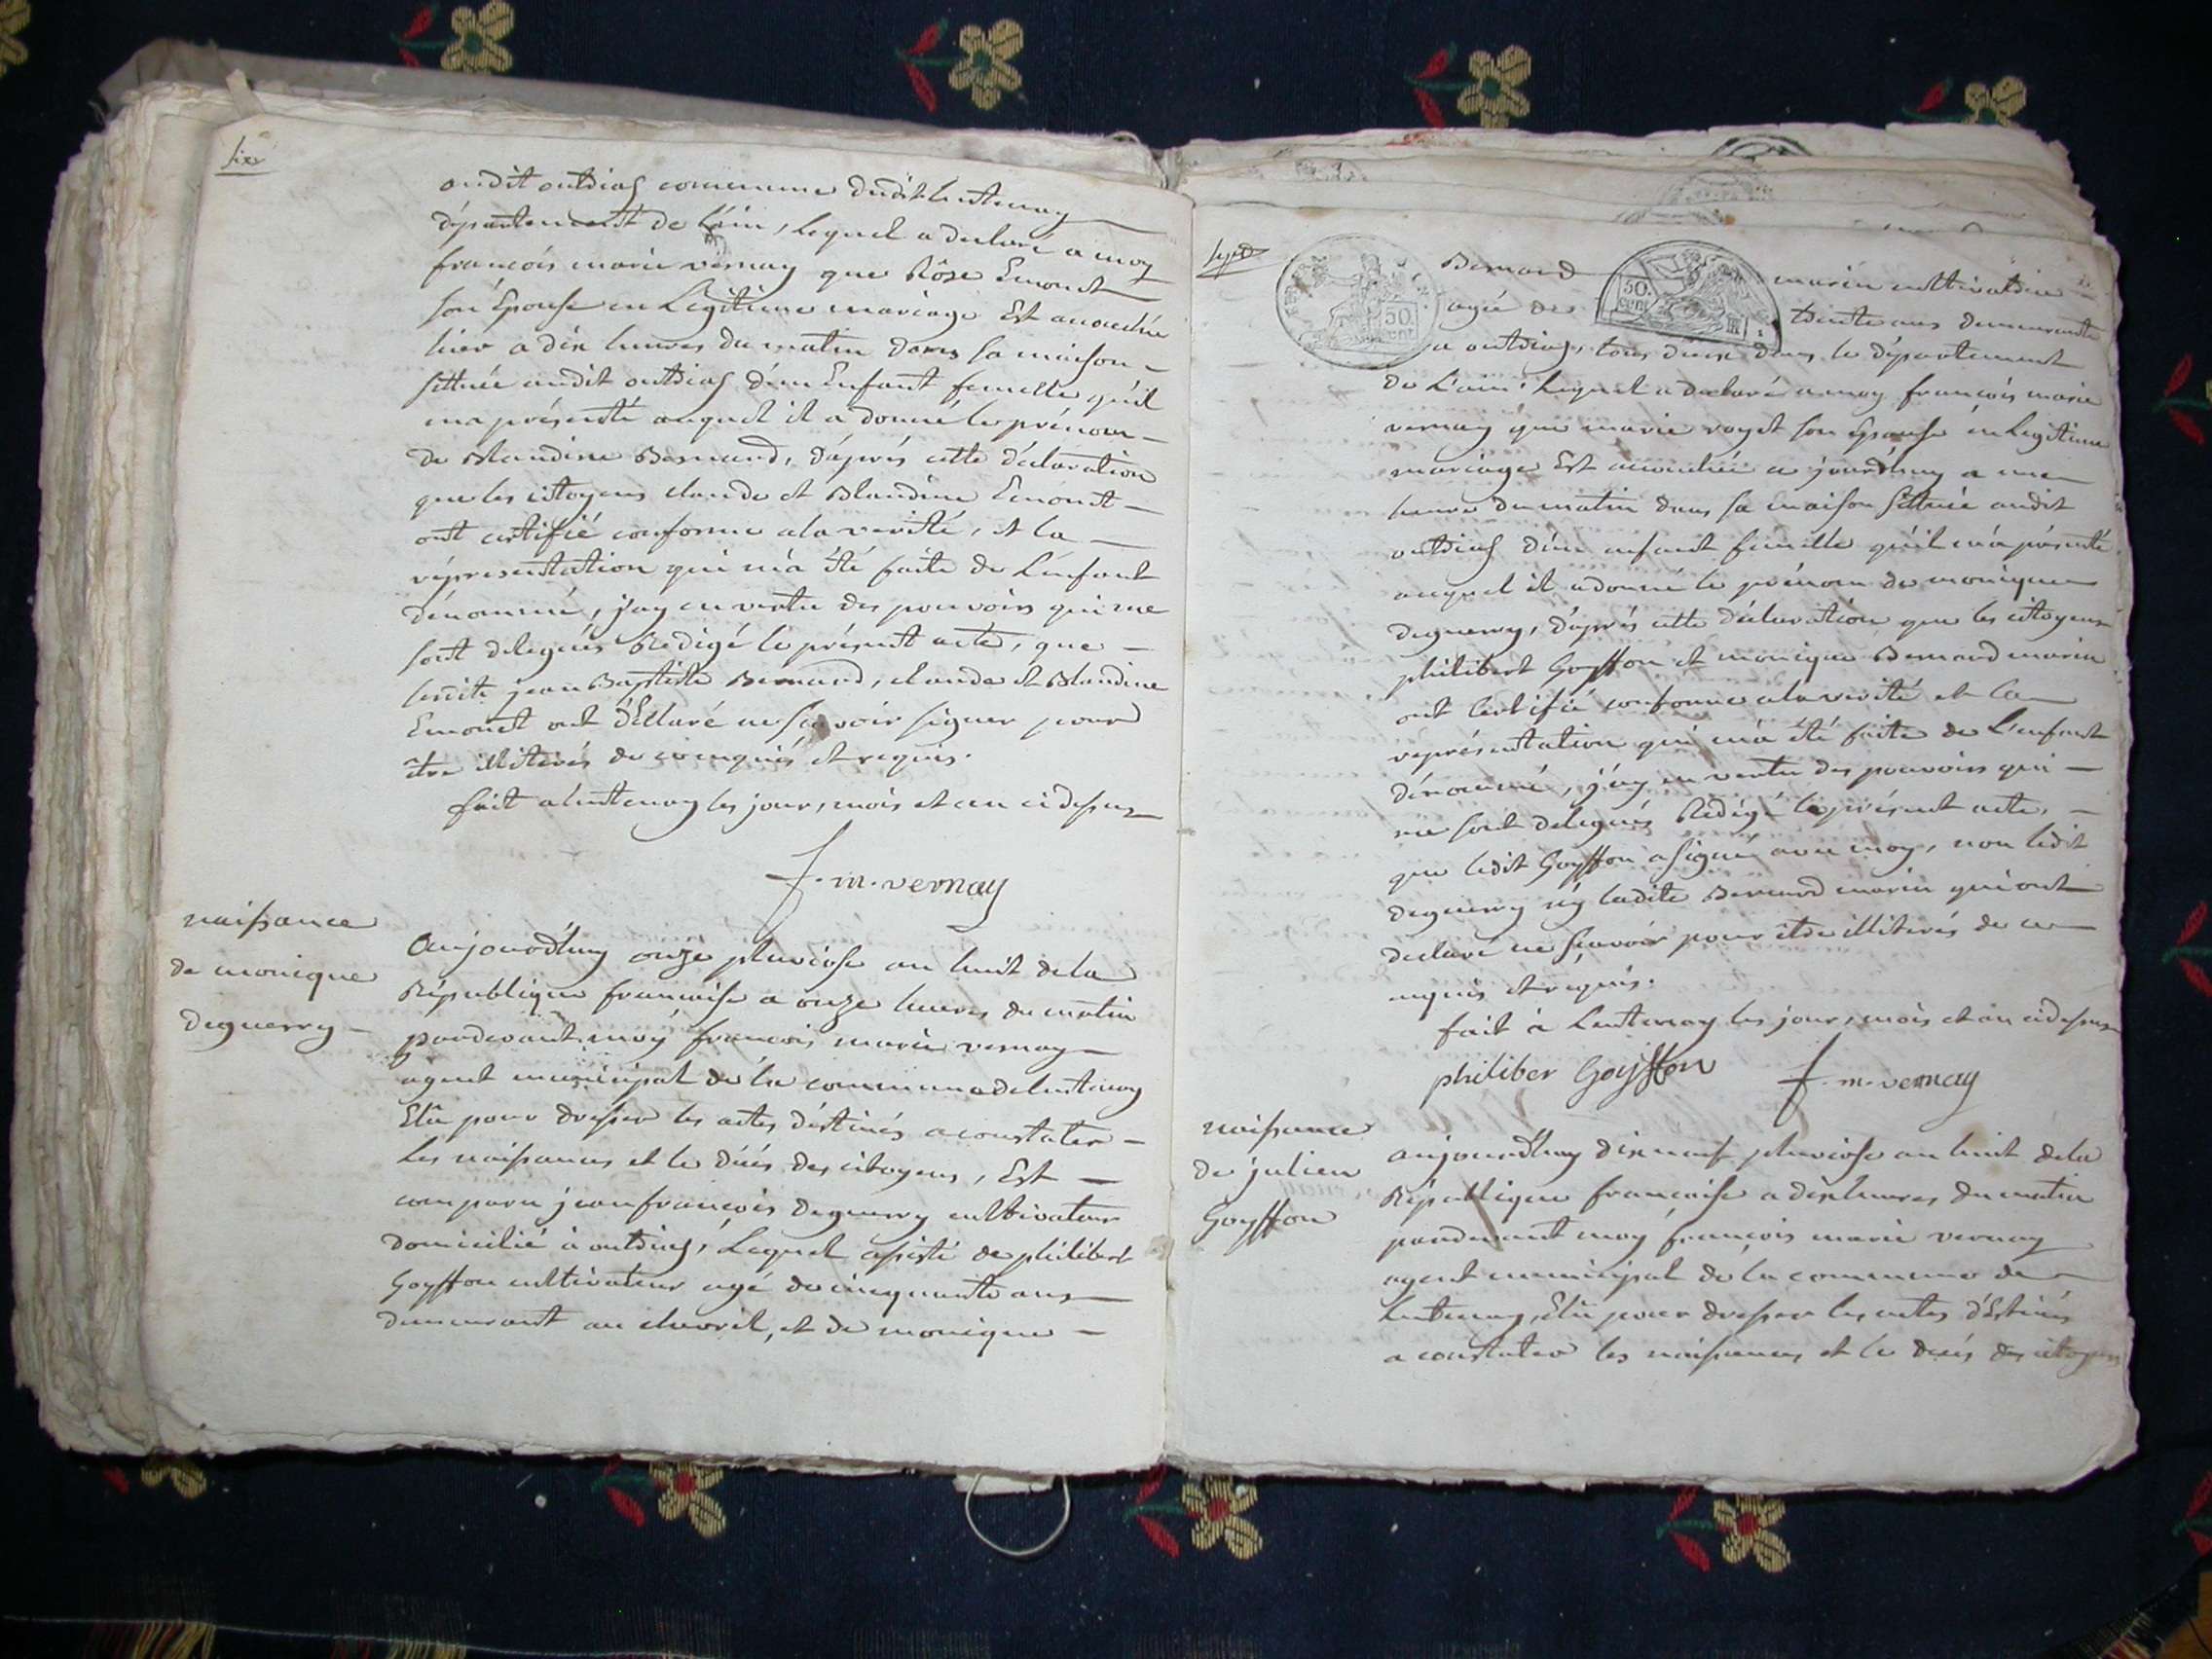 six
audit outriaz commune dudit lentenay
département de L'ain, lequel a declaré a moy
francois marie vernay que Rôse Emonet
son Epouse en Legitime mariage Est accouchée
hier a dix heures du matin dans sa maison
sittuée audit outriaz d'un Enfant femelle qu'il
ma présenté auquel il a donné le prénom
de Blandine Bernard, d'aprés cette déclaration
que les citoyens claude et Blandine Emonet
ont certifié conforme a la verité, et la
représentation qui m'a été faite de L'enfant
dénommé, j'ay en vertu des pouvoirs qui me
sont delegués Redigé le présent acte, que
lesdits jean Baptiste Bernard, claude et Blandine
Emonet ont déclaré ne sçavoir signer pour
être illiterés de ce enquis et requis.
fait a lentenay les jour, mois et an ci dessus
f. m. vernay
naissance
de monique
deguerry
Aujourd'huy onze pluviose an huit de la
République francaise a onze heures du matin
pardevant moy francois marie vernay
agent municipal de la commune de lentenay
Elû pour dresser les actes déstinés a constater
les naissances et le décés des citoyens, Est
comparu jean françois deguerry cultivateur
domicilié à outriaz, Lequel assisté de philibert
Goyffon cultivateur agé de cinquante ans
demeurant au chevril, et de monique
sept
Bernard marin cultivatrice
agée de trente ans demeurante
a outriaz, tous deux dans le département
de L'ain: Lequel a declaré a moy françois marie
vernay que marie royet son Epouse en Legitime
mariage Est accouchée a jourd'huy a une
heure du matin dans sa maison sittuée audit
outriaz d'un enfant femelle qu'il m'a présenté
auquel il a donné le prénom de monique
deguerry, d'aprés cette déclaration que les citoyens
philibert Goyffon et monique Bernard marin
ont certifié conforme a la verité et la
représentation qui m'a été faite de L'enfant
dénommé, j'ay en vertu des pouvoirs qui
me sont delegués Redigé le présent acte,
que ledit Goyffon a signé avec moy, non ledit
deguerry ny ladite Bernard marin qui ont
declaré ne sçavoir pour être illiterés de ce
enquis et requis.
fait à Lentenay les jour, mois et an ci dessus
philiber Goyffon f. m. vernay
naissance
de julien
Goyffon
aujourd'huy dix neuf pluviose an huit de la
République francaise a dix heures du matin
pardevant moy françois marie vernay
agent municipal de la commune de
Lentenay, Elû pour dresser les actes déstinés
a constater les naissances et le decés des citoyens